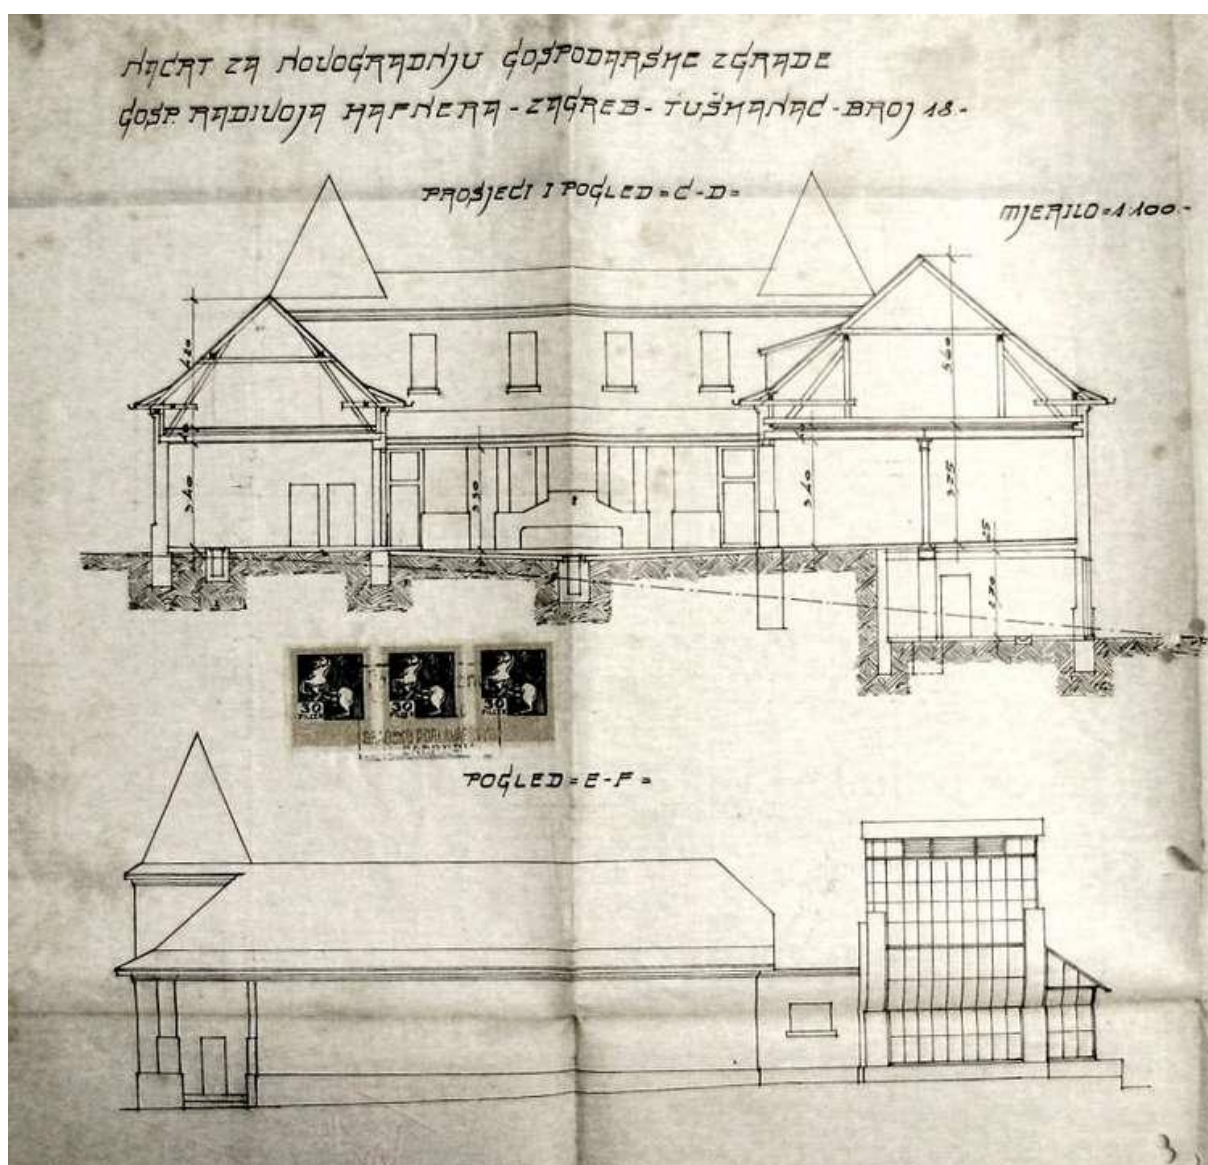 NACRT ZA NOVOGRADNJU GOSPODARSKE ZGRADE
GOSP. RADIVOJA HAFNERA - ZAGREB - TUŠKANAC - BROJ 18.-
PROSJECI I POGLED = C - D =
MJERILO = 1:100.-
4.20
5.60
40
40
3.40
3.30
3.40
3.25
25
2.70
30
30
30
POGLED = E - F =
3